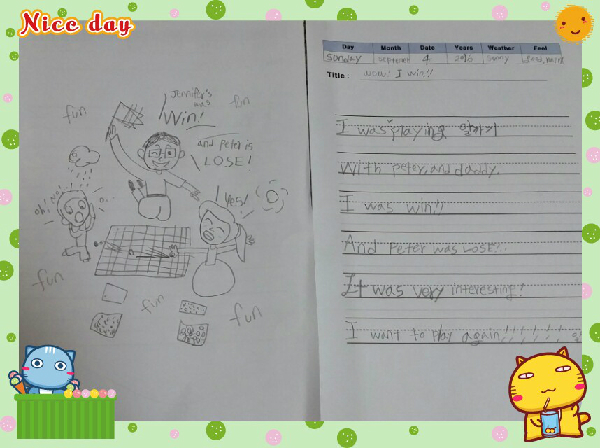 Nice day
Day Month Date Years Weather Feel
Sunday September 4 2016 Sunny
Title: wow! I win!!
fun
Jennifer's
was
Win!
fun
and Peter is
LOSE!
oh, no!
Yes!
fun
fun
fun
I was playing 알까기
With peter, and daddy.
I was win!!
And Peter was Lost..
It was very interesting!
I want to play again!!!!!!!